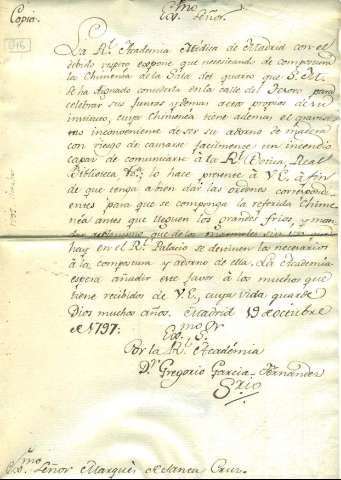 Copia.
Exmo Señor.
La Rl. Academia Médica de Madrid con el
debido respeto expone que necesitando de compostura
la Chimenea de la Sala del quarto que S. M.
se ha dignado concederla en la calle del Tesoro para
celebrar sus Juntas y demas actos propios de su
instituto, cuya Chimenea tiene ademas el gravisi-
mo inconveniente de ser su adorno de madera
con riesgo de causarse facilmente un incendio
capaz de comunicarse à la Rl. Botica, Real
Biblioteca &a. lo hace presente à V. E. à fin
de que tenga a bien dar las órdenes correspondi-
entes para que se componga la referida Chime-
nea antes que lleguen los grandes frios, y man-
dar asimismo que de los marmoles sin uso que
hay en el Rl. Palacio se destinen los necesarios
à la compostura y adorno de ella. La Academia
espera añadir este favor à los muchos que
tiene recibidos de V. E., cuya vida guarde
Dios muchos años. Madrid 19 de octubre
de 1797.
Exmo. Sr.
Por la Rl. Académia
Dr. Gregorio Garcia-Fernandez
Srio
Exmo. Señor Marqués de Santa Cruz.